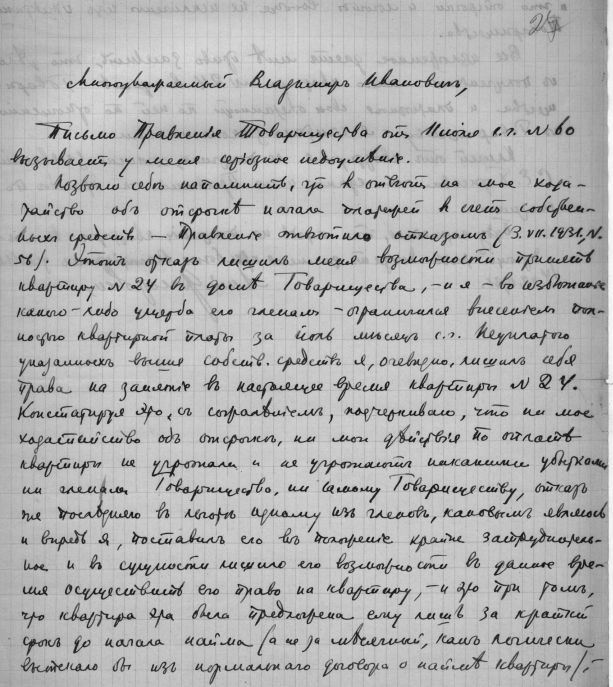 24
Многоуважаемый Владимиръ Ивановичъ,
Письмо Правленія Товарищества отъ 11 іюля с.г. N 60
вызываетъ у меня серіозное недоумѣніе.
Позволю себѣ напомнить, что в отвѣтъ на мое хода-
тайство объ отсрочкѣ начала платежей в счетъ собствен-
ныхъ средствъ — Правленіе отвѣтило отказомъ (3.VII.1931, N.
56). Этотъ отказъ лишилъ меня возможности принять
квартиру N 24 въ домѣ Товарищества, - и я - во избѣжаніе
какого-либо ущерба его членамъ - ограничился внесеніемъ пол-
ностью квартирной платы за іюль мѣсяцъ с.г. Неуплатою
указанныхъ выше собств. средствъ я, очевидно, лишилъ себя
права на занятіе въ настоящее время квартиры N 24.
Констатируя это, съ сожалѣніемъ, подчеркиваю, что ни мое
ходатайство объ отсрочкѣ, ни мои дѣйствія по оплатѣ
квартиры не угрожали и не угрожаютъ никакими убытками
ни членамъ Товарищества, ни самому Товариществу, отказъ
же послѣдняго въ льготѣ одному изъ членовъ, каковымъ являюсь
и впредь я, поставилъ его въ положеніе крайне затруднитель-
ное и въ сущности лишило его возможности въ данное вре-
мя осуществить его право на квартиру, - и это при томъ,
что квартира эта была предложена ему лишь за краткій
срокъ до начала найма (а не за мѣсячный, какъ логически
вытекало бы изъ нормальнаго договора о наймѣ квартиры), -